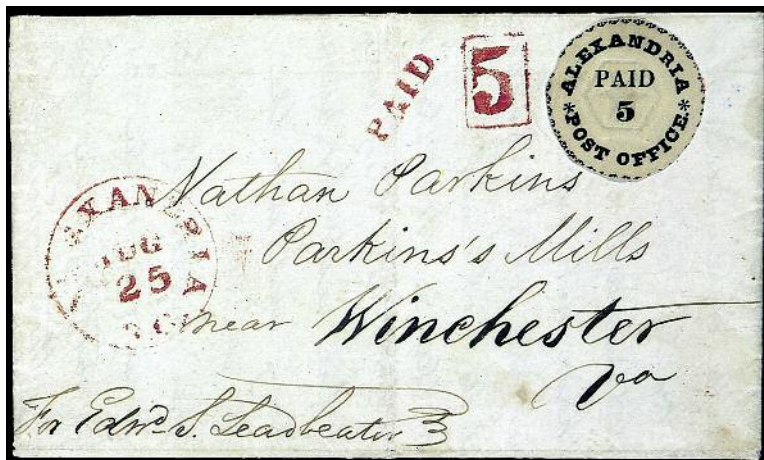 PAID
5
ALEXANDRIA
PAID
5
* POST OFFICE. *
ALEXANDRIA
AUG
25
D.C.
Nathan Parkins
Parkins's Mills
near Winchester
Va
For Edwd. S. Leadbeater